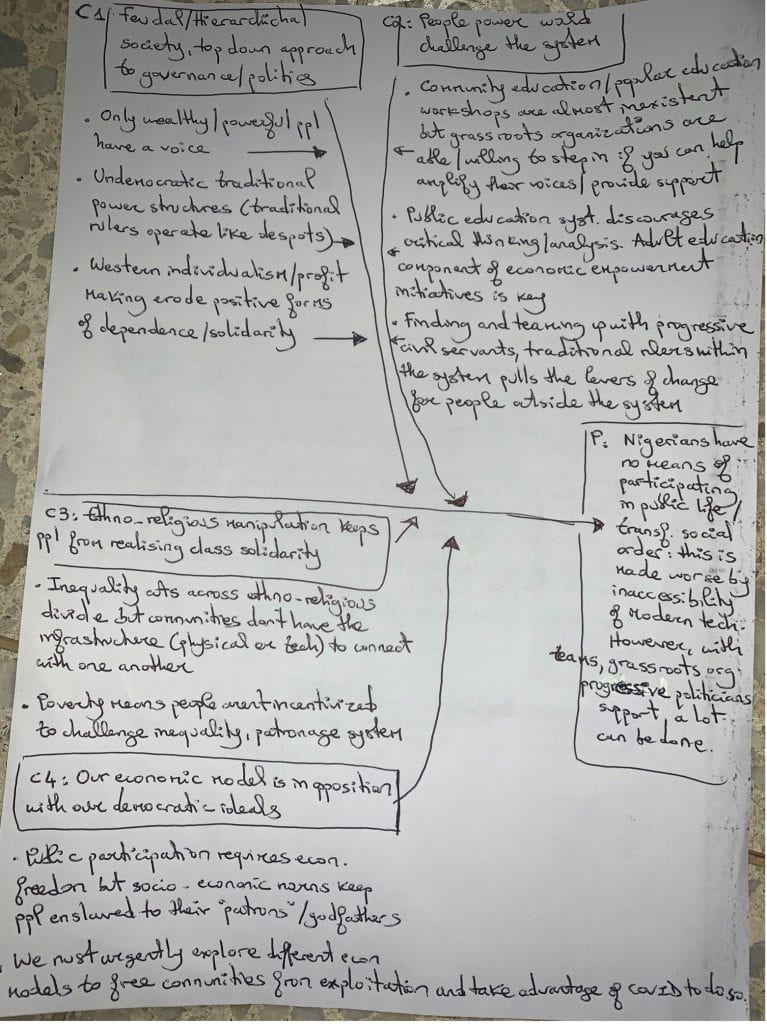 C1: Feudal/Hierardichal
society, top down approach
to governance/politics
• Only wealthy/powerful/ppl
have a voice
• Undemocratic traditional
power structures (traditional
rulers operate like despots)
• Western individualism/profit
making erode positive forms
of dependence/solidarity
C2: People power wald
challenge the system
• Community education/popular education
workshops are almost inexistent
but grassroots organizations are
able/willing to step in if you can help
amplify their voices/provide support
• Public education syst. discourages
critical thinking/analysis. Adult education
component of economic empowerment
initiatives is key
• Finding and teaming up with progressive
civil servants, traditional rulers within
the system pulls the levers of change
for people outside the system
C3: Ethno-religious manipulation keeps
ppl from realising class solidarity
• Inequality cuts across ethno-religious
divide but communities don't have the
infrastructure (physical or tech) to connect
with one another
• Poverty means people arent incentivized
to challenge inequality, patronage system
C4: Our economic model is in opposition
with our democratic ideals
• Public participation requires econ.
freedom but socio-economic norms keep
ppl enslaved to their "patrons"/godfathers
• We must urgently explore different econ
models to free communities from exploitation and take advantage of COVID to do so.
P: Nigerians have
no means of
participating
in public life/
transf. social
order: this is
made worse by
inaccessibility
of modern tech.
However, with
teams, grassroots org.
progressive politicians
support, a lot
can be done.